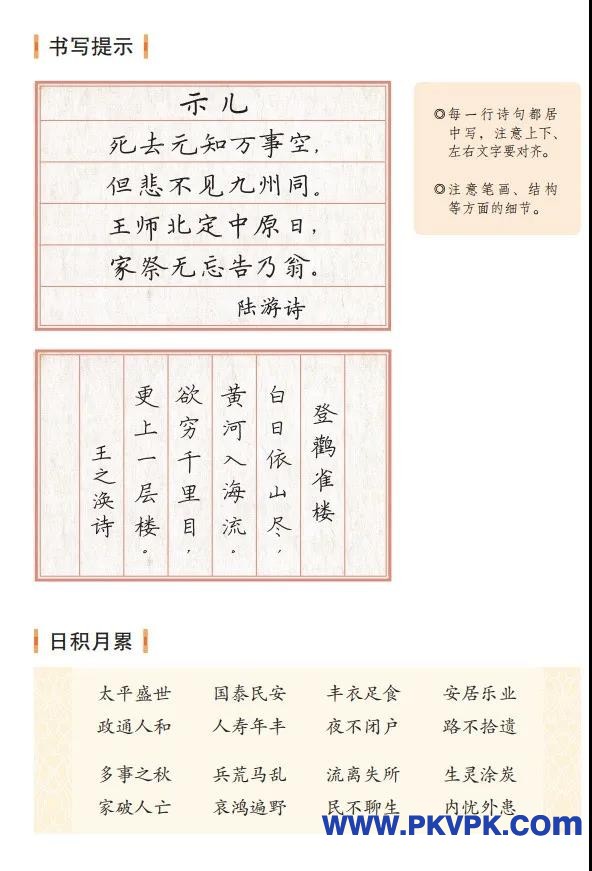 书写提示
示儿
死去元知万事空，
但悲不见九州同。
王师北定中原日，
家祭无忘告乃翁。
陆游诗
◎每一行诗句都居
中写，注意上下、
左右文字要对齐。
◎注意笔画、结构
等方面的细节。
登鹳雀楼
白日依山尽，
黄河入海流。
欲穷千里目，
更上一层楼。
王之涣诗
日积月累
太平盛世 国泰民安 丰衣足食 安居乐业
政通人和 人寿年丰 夜不闭户 路不拾遗
多事之秋 兵荒马乱 流离失所 生灵涂炭
家破人亡 哀鸿遍野 民不聊生 内忧外患
www.PKVPK.com